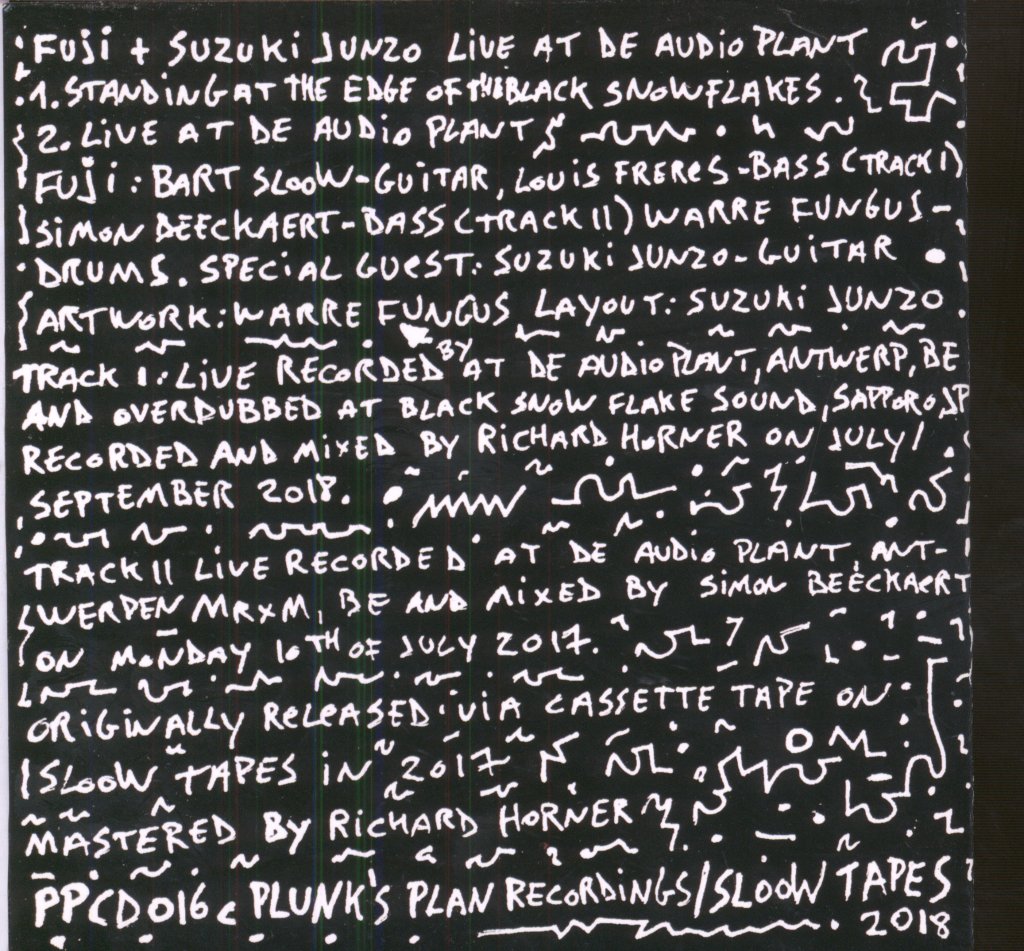 FUJI + SUZUKI JUNZO LIVE AT DE AUDIO PLANT
1. STANDING AT THE EDGE OF THE BLACK SNOWFLAKES.
2. LIVE AT DE AUDIO PLANT
FUJI: BART SLOOW-GUITAR, LOUIS FRERES-BASS (TRACK I)
SIMON BEECKAERT-BASS (TRACK II) WARRE FUNGUS-
DRUMS. SPECIAL GUEST: SUZUKI JUNZO-GUITAR
ARTWORK: WARRE FUNGUS LAYOUT: SUZUKI JUNZO
TRACK I: LIVE RECORDED BY AT DE AUDIO PLANT, ANTWERP, BE
AND OVERDUBBED AT BLACK SNOW FLAKE SOUND, SAPPORO JP
RECORDED AND MIXED BY RICHARD HORNER ON JULY/
SEPTEMBER 2018.
TRACK II LIVE RECORDED AT DE AUDIO PLANT, ANT-
WERPEN MRXM, BE AND MIXED BY SIMON BEECKAERT
ON MONDAY 10TH OF JULY 2017.
ORIGINALLY RELEASED VIA CASSETTE TAPE ON
SLOOW TAPES IN 2017
MASTERED BY RICHARD HORNER
PPCD016 C PLUNK'S PLAN RECORDINGS/SLOOW TAPES
2018